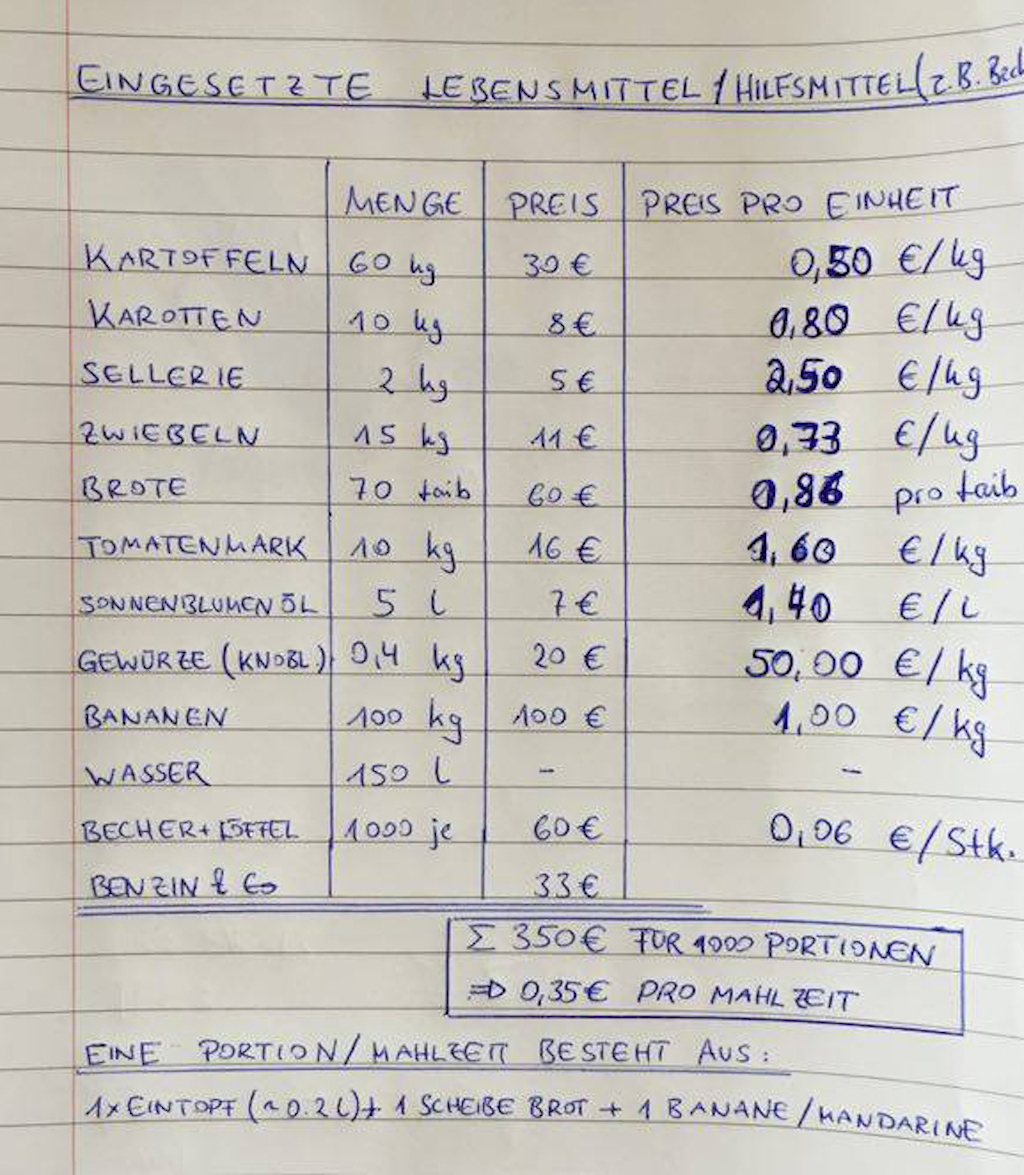 EINGESETZTE LEBENSMITTEL/HILFSMITTEL (z.B. Bech
MENGE PREIS PREIS PRO EINHEIT
KARTOFFELN 60 kg 30 € 0,50 €/kg
KAROTTEN 10 kg 8 € 0,80 €/kg
SELLERIE 2 kg 5 € 2,50 €/kg
ZWIEBELN 15 kg 11 € 0,73 €/kg
BROTE 70 Laib 60 € 0,86 pro Laib
TOMATENMARK 10 kg 16 € 1,60 €/kg
SONNENBLUMENÖL 5 L 7 € 1,40 €/L
GEWÜRZE (KNOBL) 0,4 kg 20 € 50,00 €/kg
BANANEN 100 kg 100 € 1,00 €/kg
WASSER 150 L - -
BECHER+LÖFFEL 1000 je 60 € 0,06 €/Stk.
BENZIN & Co 33 €
Σ 350 € FÜR 1000 PORTIONEN
⇒ 0,35 € PRO MAHLZEIT
EINE PORTION/MAHLZEIT BESTEHT AUS:
1x EINTOPF (~0.2 L) + 1 SCHEIBE BROT + 1 BANANE/MANDARINE